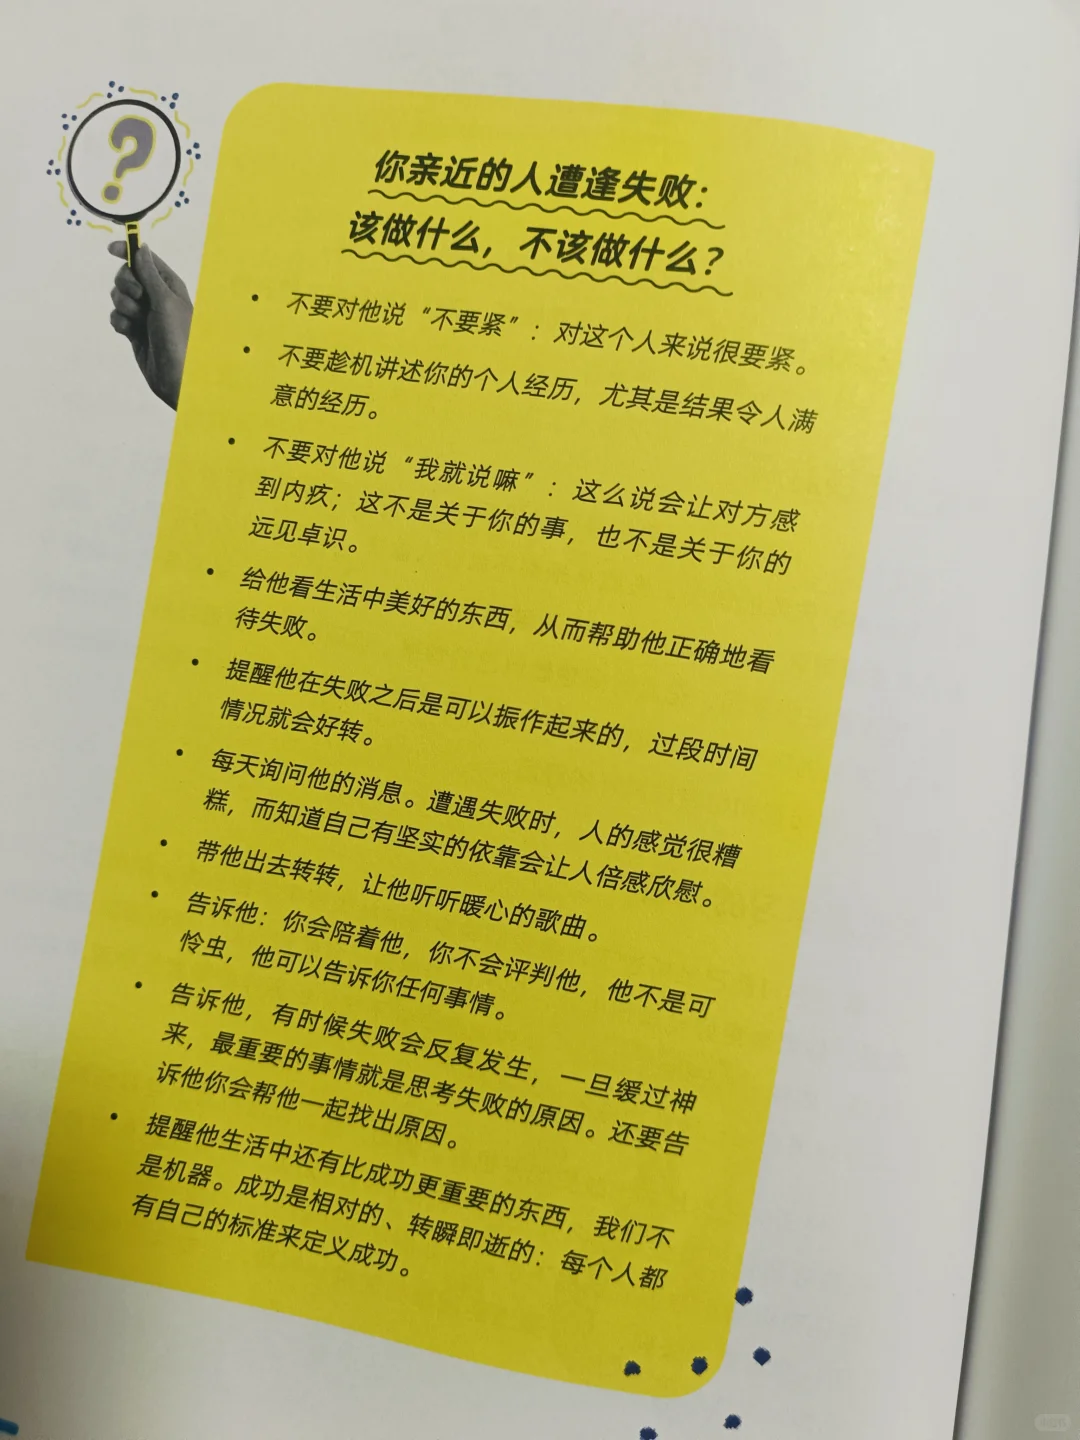 ?
你亲近的人遭逢失败：
该做什么，不该做什么？
• 不要对他说“不要紧”：对这个人来说很要紧。
• 不要趁机讲述你的个人经历，尤其是结果令人满
意的经历。
• 不要对他说“我就说嘛”：这么说会让对方感
到内疚；这不是关于你的事，也不是关于你的
远见卓识。
• 给他看生活中美好的东西，从而帮助他正确地看
待失败。
• 提醒他在失败之后是可以振作起来的，过段时间
情况就会好转。
• 每天询问他的消息。遭遇失败时，人的感觉很糟
糕，而知道自己有坚实的依靠会让人倍感欣慰。
• 带他出去转转，让他听听暖心的歌曲。
• 告诉他：你会陪着他，你不会评判他，他不是可
怜虫，他可以告诉你任何事情。
• 告诉他，有时候失败会反复发生，一旦缓过神
来，最重要的事情就是思考失败的原因。还要告
诉他你会帮他一起找出原因。
• 提醒他生活中还有比成功更重要的东西，我们不
是机器。成功是相对的、转瞬即逝的：每个人都
有自己的标准来定义成功。